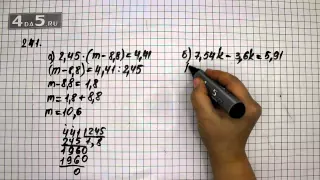 4DA5.RU
241.
а) 2,45 · (m - 8,8) = 4,41
(m - 8,8) = 4,41 : 2,45
m - 8,8 = 1,8
m = 1,8 + 8,8
m = 10,6
441 | 245
1,8
1960
1960
0
б) 7,54k - 3,6k = 5,91